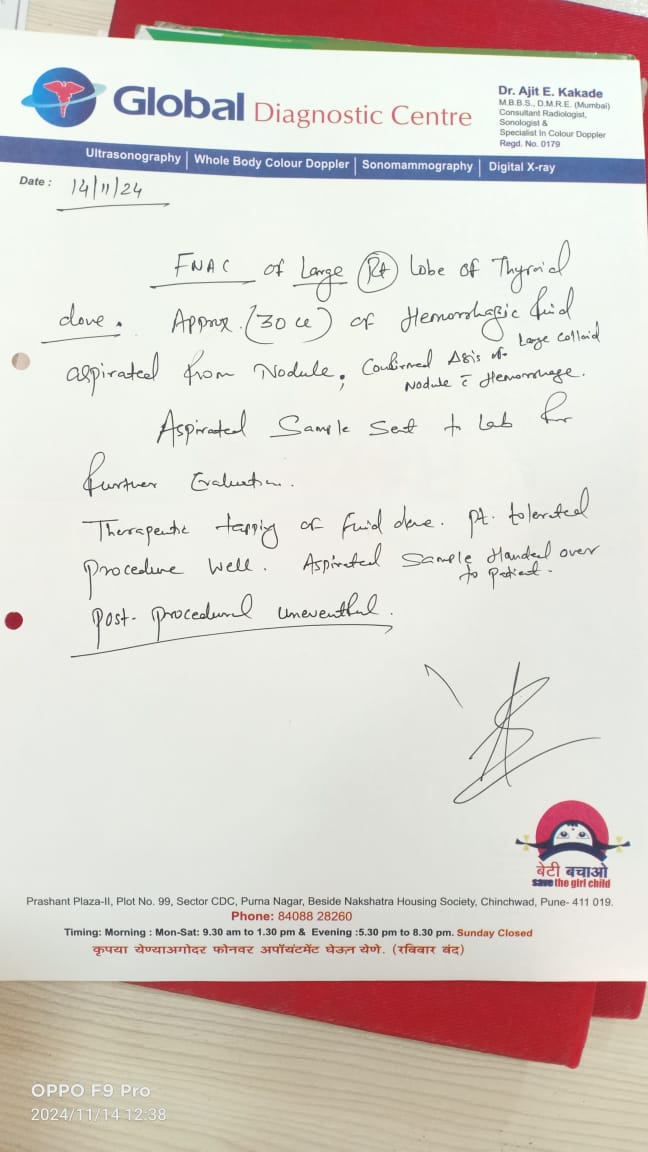 Global Diagnostic Centre
Dr. Ajit E. Kakade
M.B.B.S., D.M.R.E. (Mumbai)
Consultant Radiologist,
Sonologist &
Specialist In Colour Doppler
Regd. No. 0179
Ultrasonography | Whole Body Colour Doppler | Sonomammography | Digital X-ray
Date : 14/11/24
FNAC of Large Rt Lobe of Thyroid
done. Approx. (30 cc) of Hemorrhagic fluid
aspirated from Nodule, Confirmed of Large Colloid
Nodule c̄ Hemorrhage.
Aspirated Sample Sent to Lab for
further Evaluation.
Therapeutic tapping of fluid done. Pt. tolerated
Procedure well. Aspirated Sample Handed over
to Patient.
Post-procedural uneventful.
बेटी बचाओ
save the girl child
Prashant Plaza-II, Plot No. 99, Sector CDC, Purna Nagar, Beside Nakshatra Housing Society, Chinchwad, Pune- 411 019.
Phone: 84088 28260
Timing: Morning : Mon-Sat: 9.30 am to 1.30 pm & Evening :5.30 pm to 8.30 pm. Sunday Closed
कृपया येण्याअगोदर फोनवर अपॉयंटमेंट घेऊन येणे. (रविवार बंद)
OPPO F9 Pro
2024/11/14 12:38